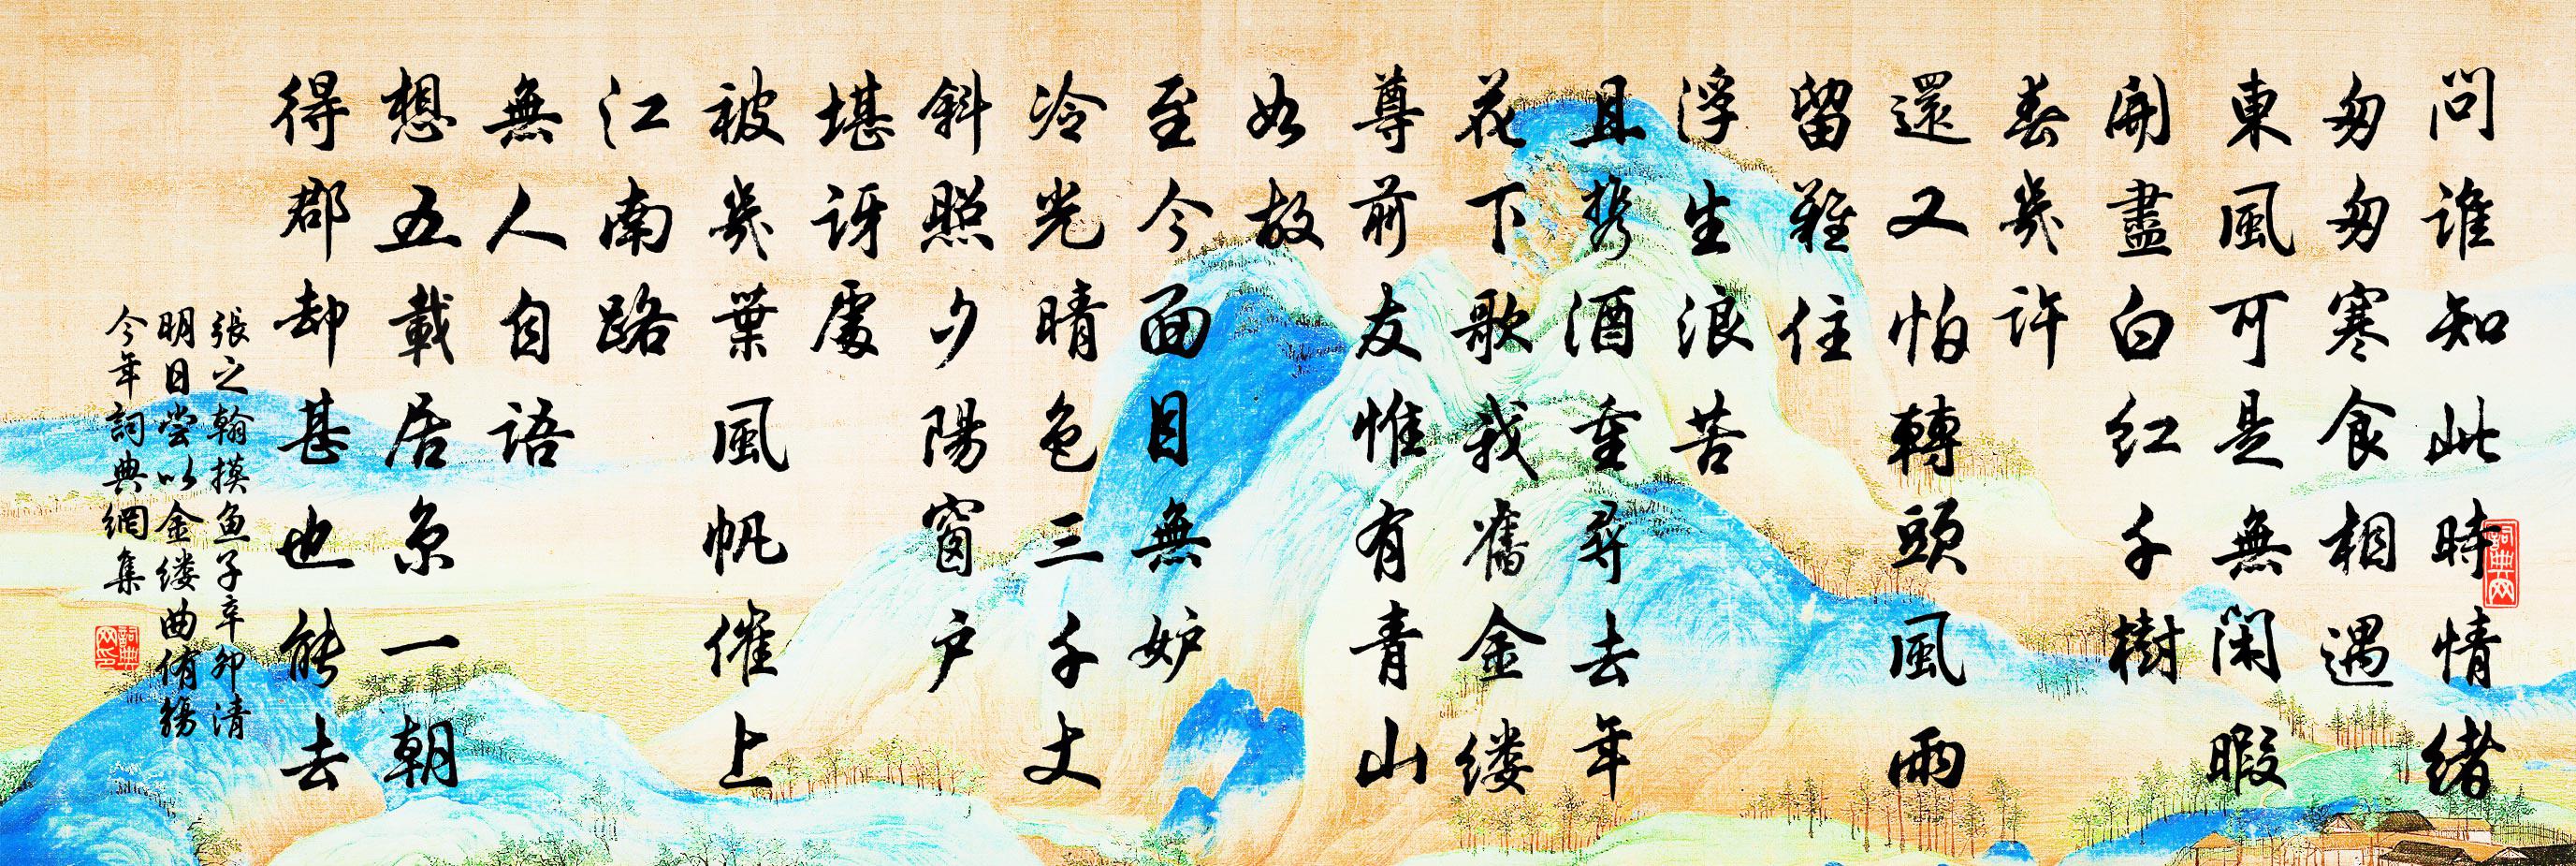 問誰知此時情緒
匆匆寒食相遇
東風可是無閑暇
開盡白紅千樹
春幾許
還又怕轉頭風雨
留難住
浮生浪苦
且携酒重尋去年
花下歌我舊金縷
尊前友惟有青山
如故
至今面目無妒
冷光晴色三千丈
斜照夕陽窗户
堪訝處
被幾葉風帆催上
江南路
無人自語
想五載居京一朝
得郡却甚也能去
張之翰摸鱼子辛卯清
明日尝以金缕曲侑觞
今年詞典網集
詞典网
詞典网印